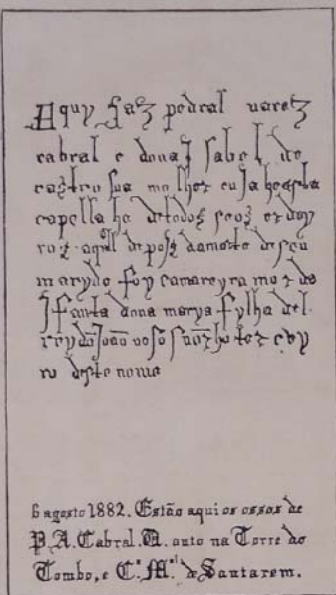 Aquy Jaz pedral uarez
cabral e dona J sabel de
castro sua molher cuja hee esta
capella he de todos seos erdey
ros aquall depois da morte de seu
marydo foy camareyra mor da
J fanta dona marya fylha del
rey dõ Joaõ noso sñor ho terceyr
ro deste nome
6 agosto 1882. Estão aqui os ossos de
P.A. Cabral. auto na Torre do
Tombo, e C.ª M.ᵃˡ de Santarem.